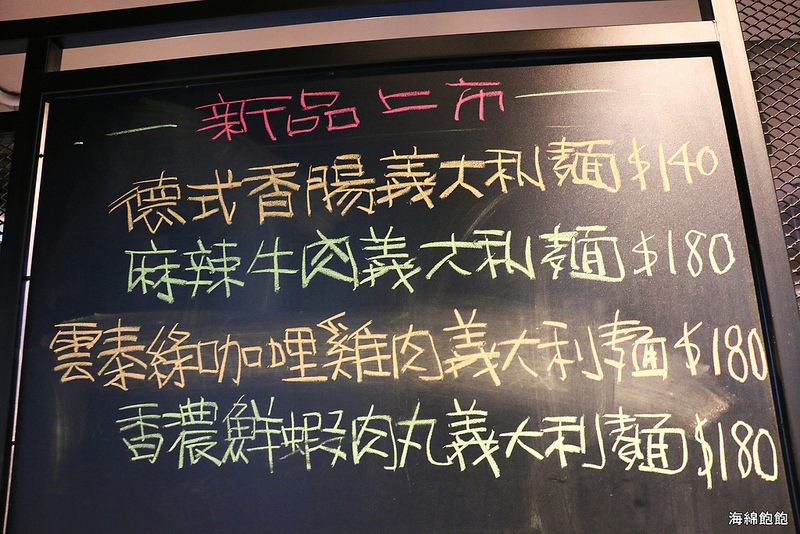 新品上市
德式香腸義大利麵$140
麻辣牛肉義大利麵$180
雲泰綠咖哩雞肉義大利麵$180
香濃鮮蝦肉丸義大利麵$180
海綿飽飽